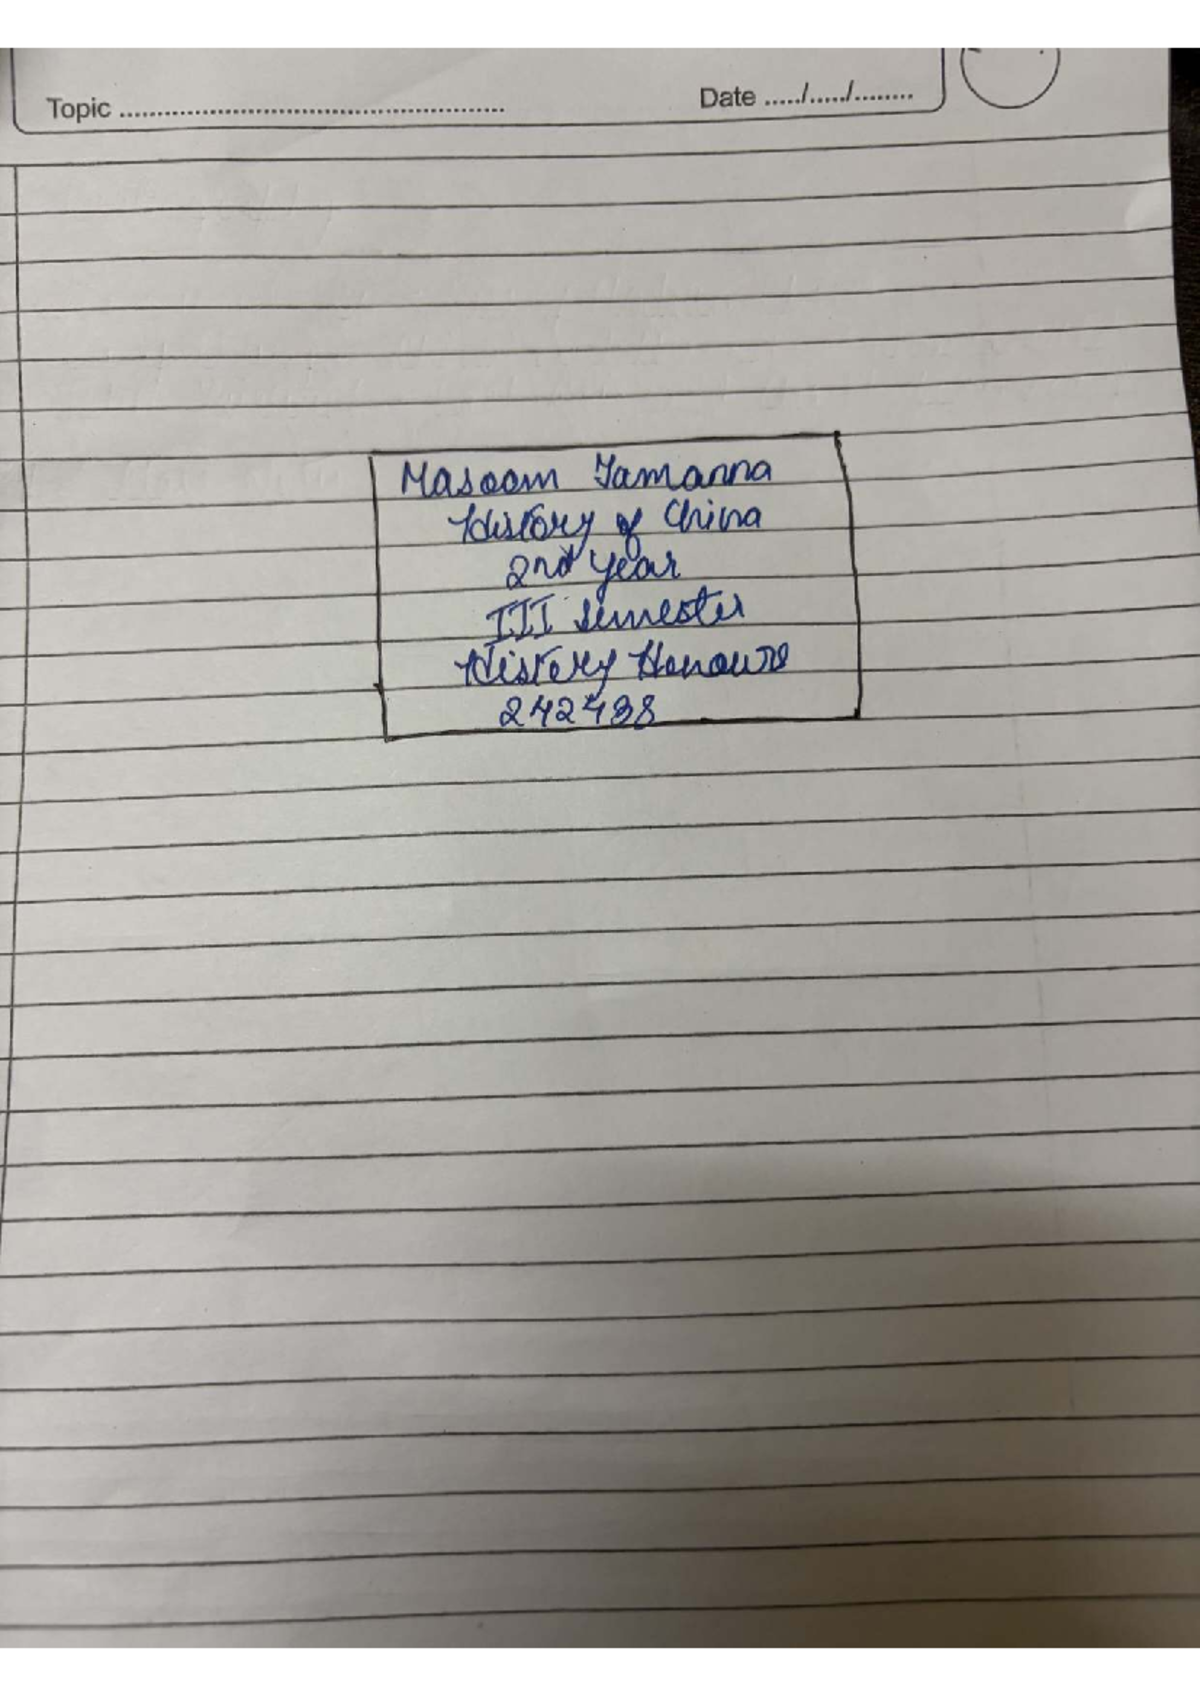 Topic ................................................ Date ...../...../........
Masoom Tamanna
History of China
2nd Year
III Semester
History Honours
242498